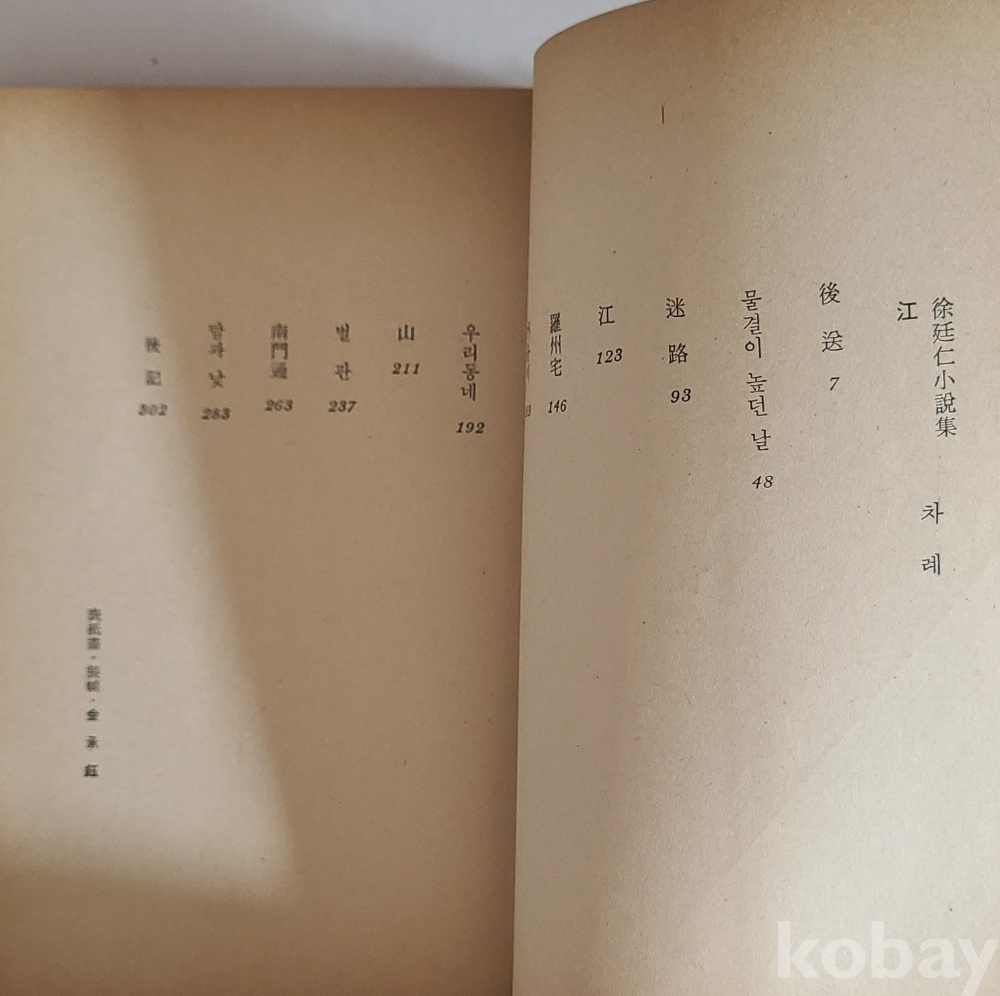 徐廷仁小說集
江
차례
後送 7
물결이 높던 날 48
迷路 93
江 123
羅州宅 146
우리동네 192
山 211
벌판 237
南門通 263
말과 낮 283
後記 302
表紙畵·裝幀·金承鈺
kobay